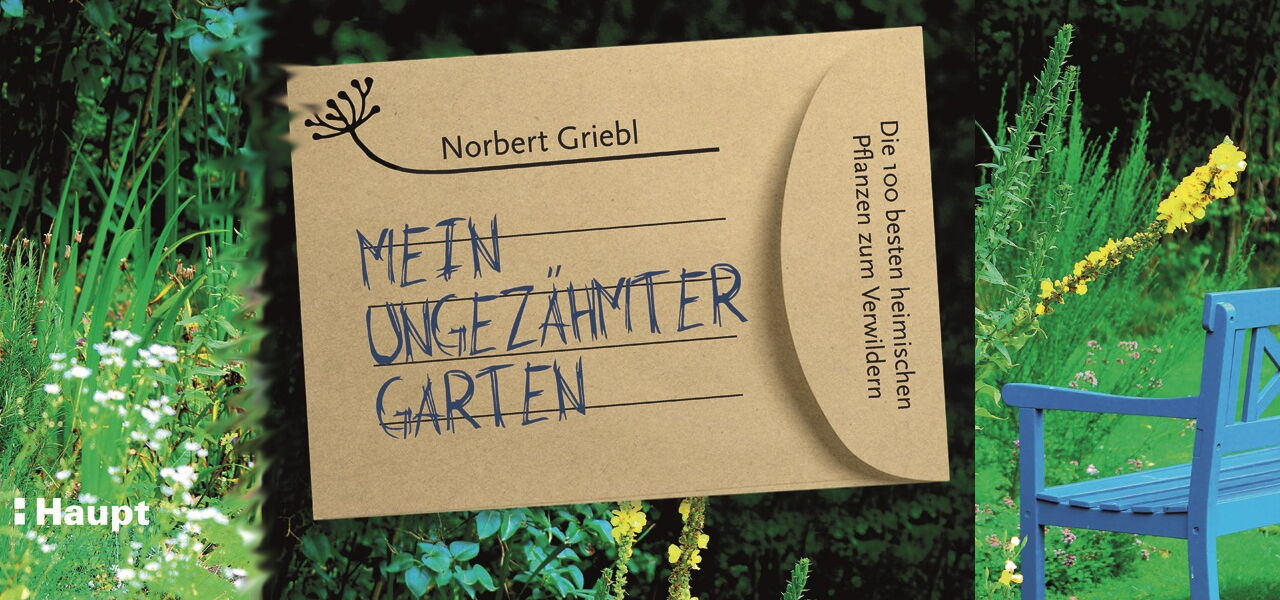 Norbert Griebl
MEIN
UNGEZÄHMTER
GARTEN
Die 100 besten heimischen
Pflanzen zum Verwildern
Haupt